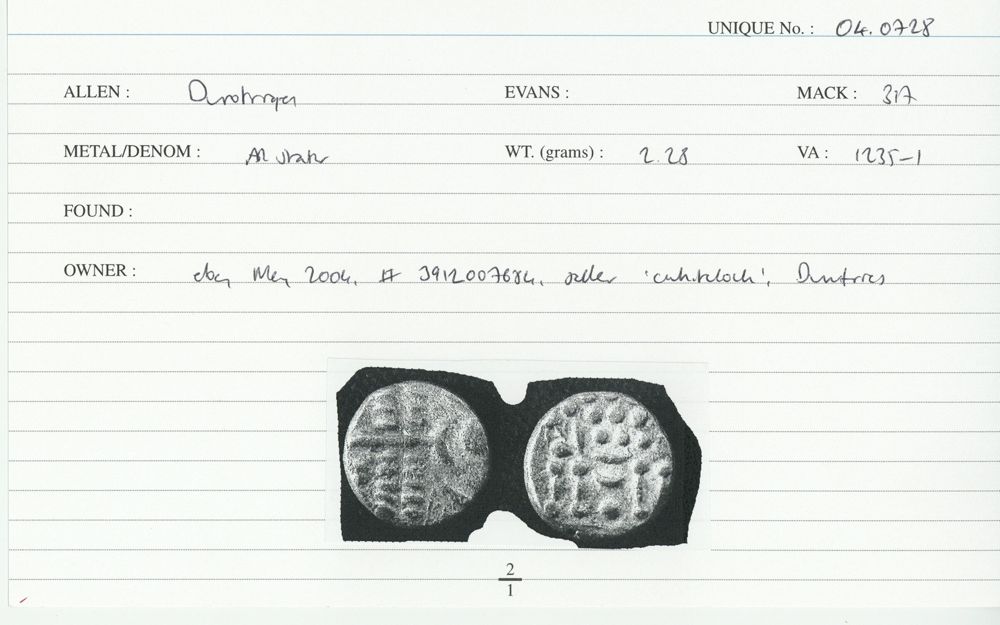 UNIQUE No. : 04.0728
ALLEN : Durotriges EVANS : MACK : 317
METAL/DENOM : AR stater WT. (grams) : 2.28 VA : 1235-1
FOUND :
OWNER : ebay May 2004, # 3912007684, seller Dumfries
2
1